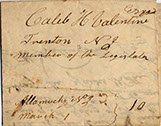 Caleb H Valentine
Trenton N J
Member of the Legislator
Allamuchy N J
March 1
10